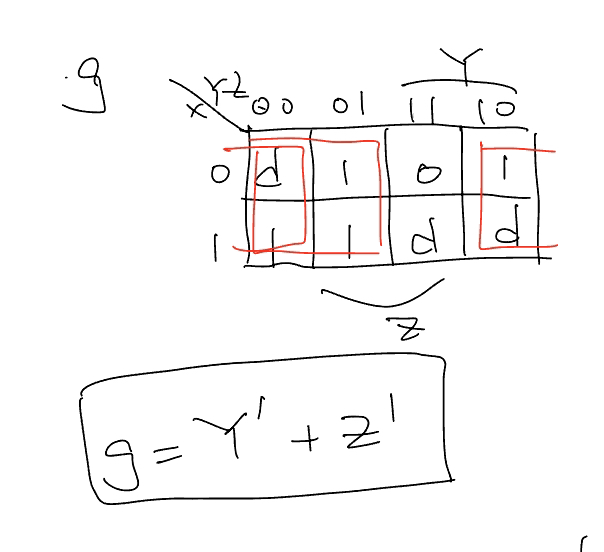 g
Y
YZ
X
00 01 11 10
0 d 1 0 1
1 1 1 d d
Z
g = Y' + Z'